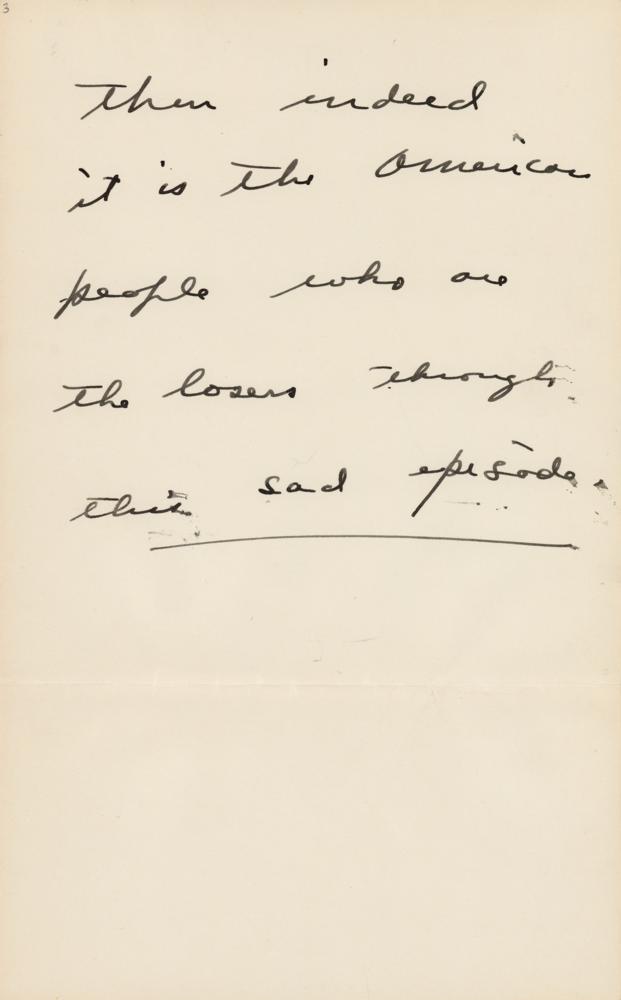 3
then indeed
it is the American
people who are
the losers through
this sad episode.